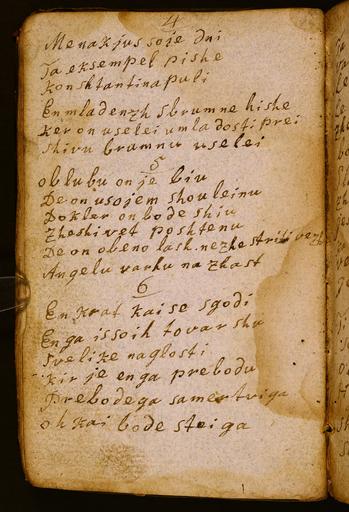 4
Menakjus soje dni
Ta eksempel pishe
Konshtantinapuli
En mladenzh sbrumne hishe
Ker on uselei umladosti prei
Shivu brumnu uselei
5
oblubu on je biu
De on usojem shouleinu
Dokler on bode shiu
Zheshivet poshtenu
De on obeno lash. nezhe striti
Angelu varhu na zhast
6
En krat kaise sgodi
En ga issoih tovarshu
Svelike naglosti
kir je enga prebodu
Prebodega samertviga
oh kai bode stoiga